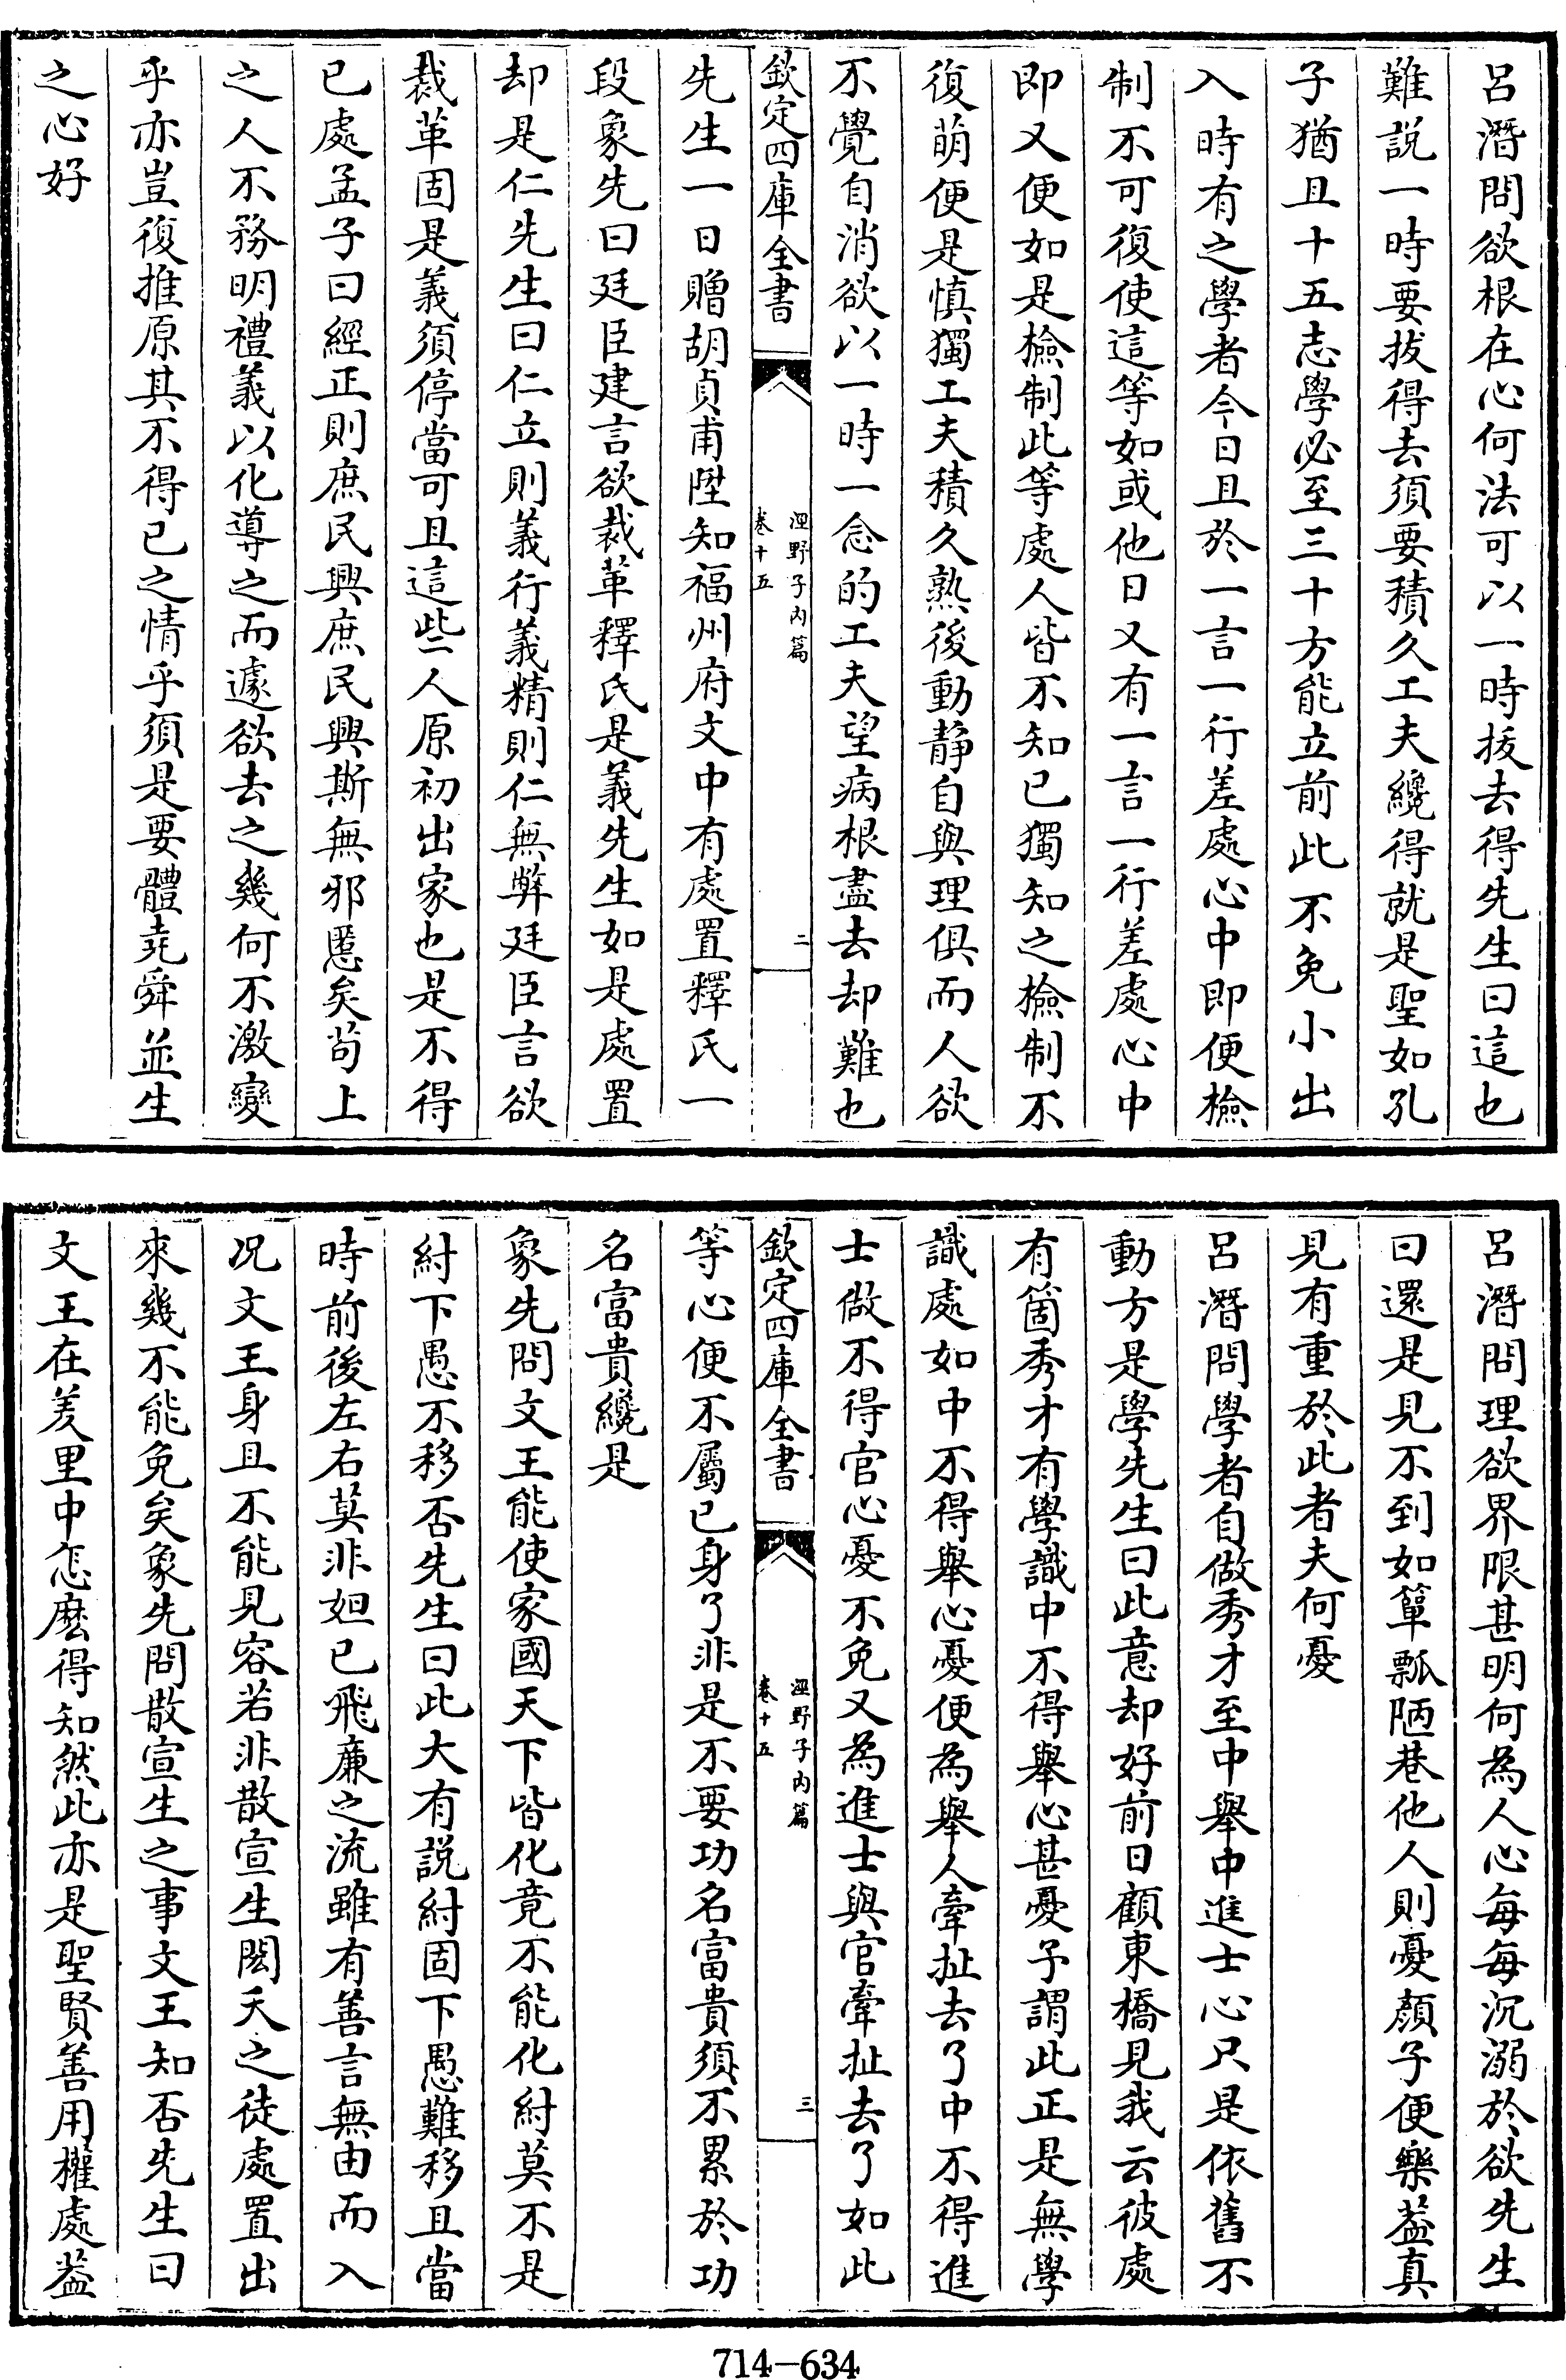 呂潛問欲根在心何法可以一時拔去得先生曰這也
難説一時要拔得去須要積久工夫纔得就是聖如孔
子猶且十五志學必至三十方能立前此不免小出
入時有之學者今日且於一言一行差處心中即便檢
制不可復使這等如或他日又有一言一行差處心中
即又便如是檢制此等處人皆不知已獨知之檢制不
復萌便是慎獨工夫積久熟後動靜自與理俱而人欲
不覺自消欲以一時一念的工夫望病根盡去却難也
欽定四庫全書
涇野子内篇
卷十五
二
先生一日贈胡貞甫陞知福州府文中有處置釋氏一
段象先曰廷臣建言欲裁革釋氏是義先生如是處置
却是仁先生曰仁立則義行義精則仁無弊廷臣言欲
裁革固是義須停當可且這些人原初出家也是不得
已處孟子曰經正則庶民興庶民興斯無邪慝矣茍上
之人不務明禮義以化導之而遽欲去之幾何不激變
乎亦豈復推原其不得已之情乎須是要體堯舜並生
之心好
呂潛問理欲界限甚明何為人心每每沉溺於欲先生
曰還是見不到如簞瓢陋巷他人則憂顔子便樂葢真
見有重於此者夫何憂
呂潛問學者自做秀才至中舉中進士心只是依舊不
動方是學先生曰此意却好前日顧東橋見我云彼處
有箇秀才有學識中不得舉心甚憂予謂此正是無學
識處如中不得舉心憂便為舉人牽扯去了中不得進
士做不得官心憂不免又為進士與官牽扯去了如此
欽定四庫全書
涇野子内篇
卷十五
三
等心便不屬已身了非是不要功名富貴須不累於功
名富貴纔是
象先問文王能使家國天下皆化竟不能化紂莫不是
紂下愚不移否先生曰此大有説紂固下愚難移且當
時前後左右莫非妲已飛廉之流雖有善言無由而入
况文王身且不能見容若非散宣生閎夭之徒處置出
來幾不能免矣象先問散宣生之事文王知否先生曰
文王在羑里中怎麽得知然此亦是聖賢善用權處葢
714-634